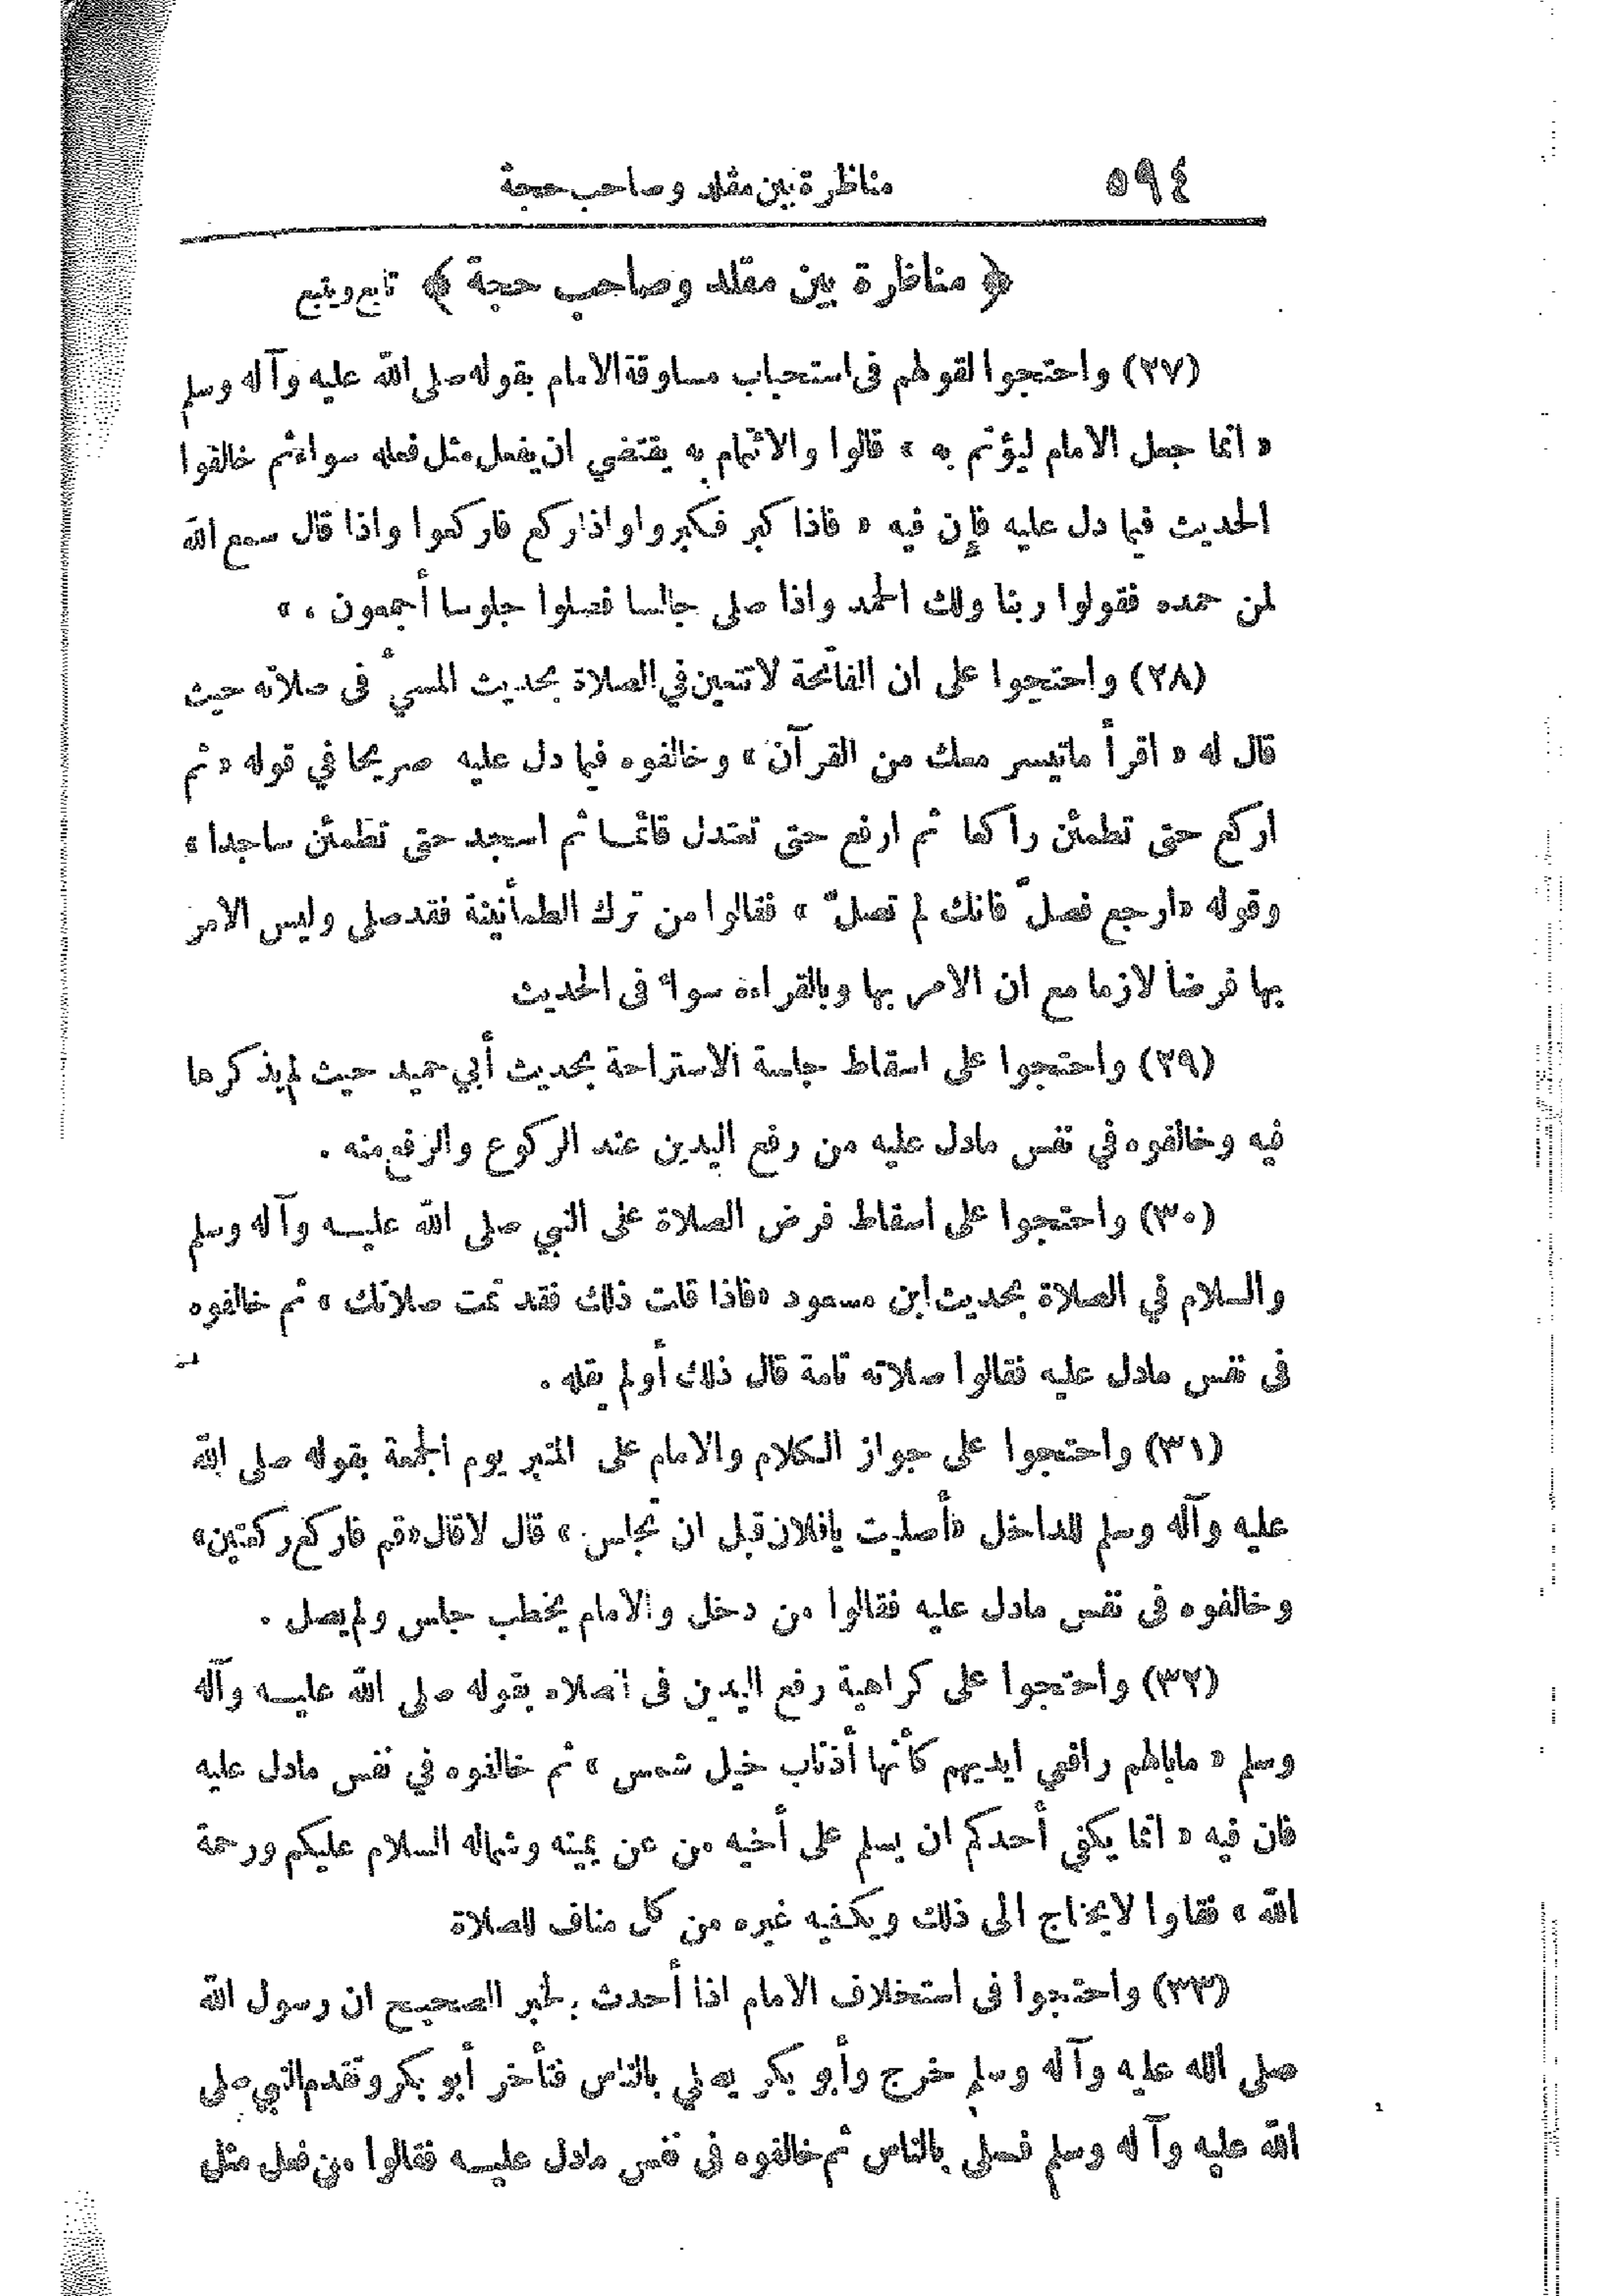 ٥٩٤ مناظرة بين مقلد وصاحب حجة
﴿ مناظرة بين مقلد وصاحب حجة ﴾ تابع ويتبع
(٢٧) واحتجوا لقولهم فى استحباب مساوقة الامام بقوله صلى الله عليه وآله وسلم
« انما جعل الامام ليؤتم به » قالوا والائتمام به يقتضي ان يفعل مثل فعله سواء ثم خالفوا
الحديث فيما دل عليه فإن فيه « فاذا كبر فكبروا واذا ركع فاركعوا واذا قال سمع الله
لمن حمده فقولوا ربنا ولك الحمد واذا صلى جالسا فصلوا جلوسا أجمعون . »
(٢٨) واحتجوا على ان الفاتحة لا تتعين في الصلاة بحديث المسيء فى صلاته حيث
قال له « اقرأ ماتيسر معك من القرآن » وخالفوه فيما دل عليه صريحا في قوله « ثم
اركع حتى تطمئن راكعا ثم ارفع حتى تعتدل قائما ثم اسجد حتى تطمئن ساجدا »
وقوله «ارجع فصلّ فانك لم تصلّ » فقالوا من ترك الطمأنينة فقد صلى وليس الامر
بها فرضا لازما مع ان الامر بها وبالقراءة سواء فى الحديث
(٢٩) واحتجوا على اسقاط جلسة الاستراحة بحديث أبي حميد حيث لم يذكرها
فيه وخالفوه في نفس مادل عليه من رفع اليدين عند الركوع والرفع منه .
(٣٠) واحتجوا على اسقاط فرض الصلاة على النبي صلى الله عليه وآله وسلم
والسلام في الصلاة بحديث ابن مسعود «فاذا قلت ذلك فقد تمت صلاتك » ثم خالفوه
فى نفس مادل عليه فقالوا صلاته تامة قال ذلك أو لم يقله .
(٣١) واحتجوا على جواز الكلام والامام على المنبر يوم الجمعة بقوله صلى الله
عليه وآله وسلم للداخل «أصليت يافلان قبل ان تجلس » قال لا قال «قم فاركع ركعتين»
وخالفوه فى نفس مادل عليه فقالوا من دخل والامام يخطب جلس ولم يصل .
(٣٢) واحتجوا على كراهية رفع اليدين فى الصلاة بقوله صلى الله عليه وآله
وسلم « مابالهم رافعي ايديهم كأنها أذناب خيل شمس » ثم خالفوه في نفس مادل عليه
فان فيه « انما يكفي أحدكم ان يسلم على أخيه من عن يمينه وشماله السلام عليكم ورحمة
الله » فقالوا لايحتاج الى ذلك ويكفيه غيره من كل مناف للصلاة
(٣٣) واحتجوا فى استخلاف الامام اذا أحدث بالخبر الصحيح ان رسول الله
صلى الله عليه وآله وسلم خرج وأبو بكر يصلي بالناس فتأخر أبو بكر وتقدم النبي صلى
الله عليه وآله وسلم فصلى بالناس ثم خالفوه فى نفس مادل عليه فقالوا من فعل مثل